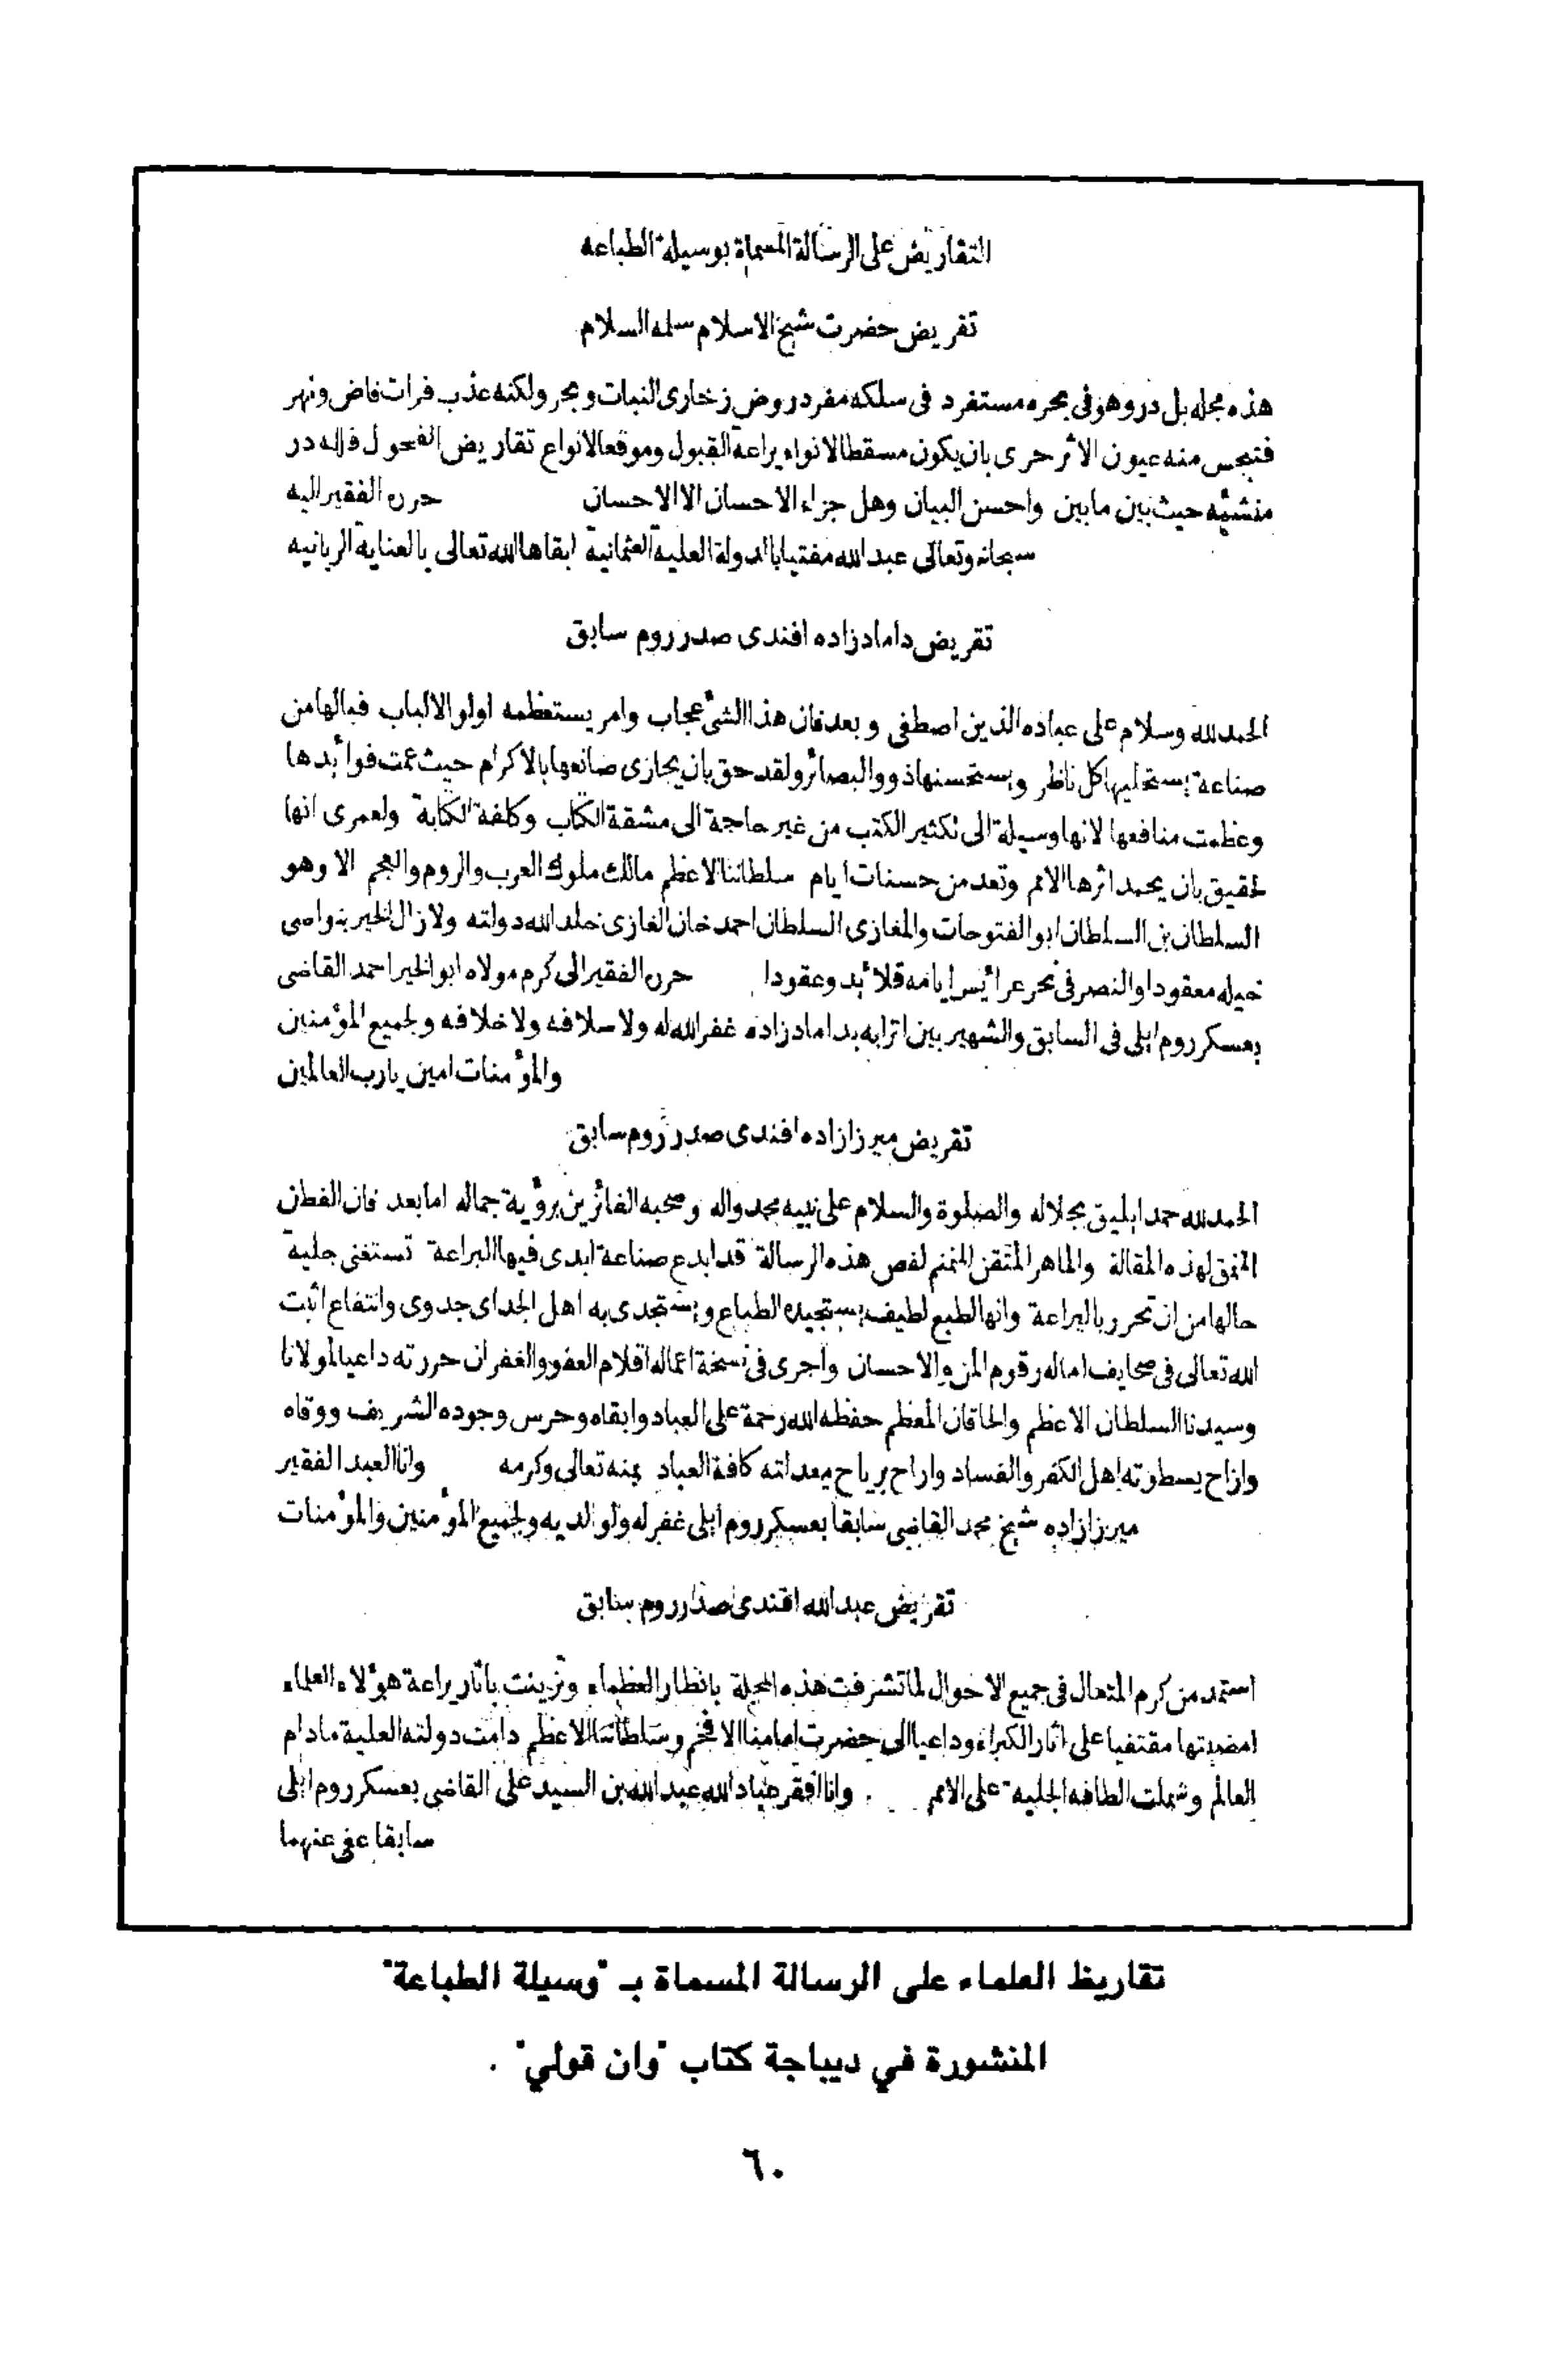 التقاريض على الرسالة المسماة بوسيلة الطباعه
تقريض حضرت شيخ الاسلام سلمه السلام
هذه مجله بل در وهو فى بحره مستفرد فى سلكه مفرد روض زخارى النبات وبحر ولكنه عذب فرات فاض ونهر
فتبجس منه عيون الاثر حرى بان يكون مسقطا لانواء يراعة القبول وموقعا لانواع تقاريض الفحول فلله در
منشئه حيث بين مابين واحسن البيان وهل جزاء الاحسان الا الاحسان حرره الفقير اليه
سبحانه وتعالى عبد الله مفتيا بالدولة العلية العثمانية ابقاها الله تعالى بالعناية الربانيه
تقريض داماد زاده افندى صدر روم سابق
الحمد لله وسلام على عباده الذين اصطفى وبعد فان هذا الشئ عجاب وامر يستعظمه اولو الالباب فيالها من
صناعة يستحليها كل ناظر ويستحسنها ذوو البصائر ولقد حق بان يجازى صانعها بالاكرام حيث عمت فوائدها
وعظمت منافعها لانها وسيلة الى تكثير الكتب من غير حاجة الى مشقة الكتاب وكلفة الكتابة ولعمرى انها
لحقيق بان يحمد اثرها الامم وتعد من حسنات ايام سلطاننا الاعظم مالك ملوك العرب والروم والعجم الا وهو
السلطان بن السلطان ابو الفتوحات والمغازى السلطان احمد خان الغازى خلد الله دولته ولا زال الخير بنواصى
خيله معقودا والنصر فى نحر عرائس ايامه قلائد وعقودا حرره الفقير الى كرم مولاه ابو الخير احمد القاضى
بعسكر روم ايلى فى السابق والشهير بين اترابه بداماد زاده غفر الله له ولاسلافه ولاخلافه ولجميع المؤمنين
والمؤمنات امين يا رب العالمين
تقريض ميرزا زاده افندى صدر روم سابق
الحمد لله حمدا يليق بجلاله والصلوة والسلام على نبيه محمد واله وصحبه الفائزين برؤية جماله اما بعد فان الفطن
المنمق لهذه المقالة والماهر المتقن المنمنم لفص هذه الرسالة قد ابدع صناعة ابدى فيها البراعة تستغنى جلية
حالها من ان تحرر باليراعة وانها لطبع لطيف يستجيده الطباع ويستجدى به اهل الجداى جدوى وانتفاع اثبت
الله تعالى فى صحايف اماله رقوم المن والاحسان واجرى فى نسخة اعماله اقلام العفو والغفران حررته داعيا لمولانا
وسيدنا السلطان الاعظم والخاقان المعظم حفظه الله رحمة على العباد وابقاه وحرس وجوده الشريف ووقاه
وازاح بسطوته اهل الكفر والفساد واراح برياح معدلته كافة العباد بمنه تعالى وكرمه وانا العبد الفقير
ميرزا زاده شيخ محمد القاضى سابقا بعسكر روم ايلى غفر له ولوالديه ولجميع المؤمنين والمؤمنات
تقريض عبد الله افندى صدر روم سابق
استمد من كرم المتعال فى جميع الاحوال لما تشرفت هذه المجلة بانظار العظماء وتزينت باثار يراعة هؤلاء العلماء
امضيتها مقتفيا على اثار الكبراء وداعيا الى حضرت امامنا الافخم وسلطاننا الاعظم دامت دولته العلية مادام
العالم وشملت الطافه الجلية على الامم وانا افقر عباد الله عبد الله بن السيد على القاضى بعسكر روم ايلى
سابقا عفى عنهما
تقاريظ العلماء على الرسالة المسماة بـ "وسيلة الطباعة"
المنشورة في ديباجة كتاب "وان قولي" .
٦٠